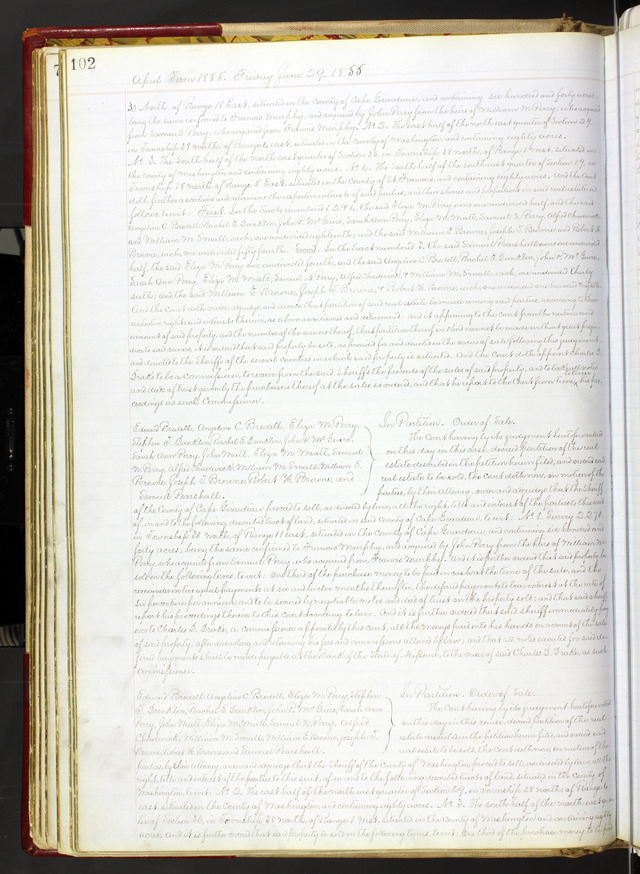 102
April Term 1855. Friday June 29. 1855
30 North of Range 11 East, situated in the County of Cape Girardeau, and containing six hundred and forty acres,
being the same confirmed to Francis Murphy, and acquired by John Perry from the heirs of William M. Perry, who acquired
from Samuel Perry, who acquired from Francis Murphy. No 2. The East half of the north east quarter of Section 29.
in Township 38 north of Range 6 east, situated in the County of Washington, and containing eighty acres.
No 3. The South half of the north east quarter of Section 36, in Township 38 north, of Range 1 West, situated in
the County of Washington and containing eighty acres. No 4. The East half of the south east quarter of Section 19, in
Township 38 north of Range 5 East, situated in the County of St Francois and containing eighty acres. And the Court
doth further ascertain and determine the respective interests of said parties, and their shares and proportions in said real estate as
follows, to wit: First. In the tracts numbered 1. 2 & 4, the said Eliza M. Perry owns one undivided half, and the said
Angeline C. Bredell, Rachel E. Dunklin, John P. McGuire, Sarah Ann Perry, Eliza M. Matt, Samuel N. Perry, Alfred Chadwick
and William M. Small, each, one undivided eighteenth, and the said William E. Browne, Joseph T. Browne, and Robert H.
Browne, each, one undivided fifty fourth. Second. In the tract numbered 3. the said Samuel Pearshall owns one undivided
half, the said Eliza M. Perry one undivided fourth, and the said Angeline C. Bredell, Rachel E. Dunklin, John P. McGuire,
Sarah Ann Perry, Eliza M. Matt, Samuel N. Perry, Alfred Chadwick, & William M. Small, each, one undivided thirty
sixth; and the said William E. Browne, Joseph T. Browne, & Robert H. Browne, each, one undivided one hundred
And the Court doth order, adjudge and decree that partition of said real estate be made among said parties, according to their
respective rights and interests therein, as above ascertained and determined. and it appearing to the Court from the nature and
amount of said property, and the number of the owners thereof, that partition thereof in kind cannot be made without great preju-
dice to said owners, it is ordered that said property be sold, as provided for and directed in the orders of sale following this judgement,
and directed to the Sheriffs of the several counties in which said property is situated. And the Court doth appoint Charles D.
Drake to be a Commissioner, to receive from the said Sheriffs the proceeds of the sales of said property, and to take all notes
and deeds of trust given by the purchasers thereof at the sales so ordered, and that he report to the Court from time to time his pro-
ceedings as such Commissioner.
Edward Bredell, Angeline C. Bredell, Eliza M. Perry,
Stephen T. Dunklin, Rachel E. Dunklin, John P. McGuire,
Sarah Ann Perry, John Matt, Eliza M. Matt, Samuel
N. Perry, Alfred Chadwick, William M. Small, William E.
Browne, Joseph T. Browne, Robert H. Browne, and
Samuel Pearshall.
In Partition. Order of Sale.
The Court having by its judgment heretofore entered
on this day in this case, decreed partition of the real
estate described in the petition herein filed, and ordered said
real estate to be sold, the Court doth now, on motion of the
parties, by their attorney, order and adjudge that the Sheriff
of the County of Cape Girardeau proceed to sell, as directed by law, all the right, title and interest of the parties to this suit
of, in and to the following described tract of land, situated in said County of Cape Girardeau, to wit: No 1. Survey 2271.
in Township 30 north, of Range 11 east, situated in the County of Cape Girardeau, and containing six hundred and
forty acres, being the same confirmed to Francis Murphy, and acquired by John Perry from the heirs of William M.
Perry, who acquired from Samuel Perry, who acquired from Francis Murphy. And it is further ordered that said property be
sold on the following terms, to wit: One third of the purchase money to be paid in cash at the time of the sale, and the
remainder in two equal payments at six and twelve months thereafter, the deferred payments to bear interest at the rate of
six per centum per annum, and to be secured by negotiable notes and deed of trust on the property sold; and that said sheriff
report his proceedings herein to this Court according to law. And it is further ordered that said sheriff immediately pay
over to Charles D. Drake, a commissioner appointed by this Court, all the moneys paid into his hands on account of the sale
of said property, after deducting and retaining his fees and commissions allowed by law; and that all notes executed for said de-
ferred payments shall be made payable at the Bank of the State of Missouri, to the order of said Charles D. Drake, as such
Commissioner.
Edward Bredell, Angeline C. Bredell, Eliza M. Perry, Stephen
T. Dunklin, Rachel E. Dunklin, John P. McGuire, Sarah Ann
Perry, John Matt, Eliza M. Matt, Samuel N. Perry, Alfred
Chadwick, William M. Small, William E. Browne, Joseph T.
Browne, Robert H. Browne and Samuel Pearshall.
In Partition. Order of Sale.
The Court having by its judgment heretofore entered
on this day in this cause, decreed partition of the real
estate described in the petition herein filed, and ordered said
real estate to be sold, the Court doth now, on motion of the
parties by their attorney, order and adjudge that the Sheriff of the County of Washington proceed to sell, as directed by law, all the
right, title and interest of the parties to this suit, of, in and to the following described tracts of land, situated in the County of
Washington, to wit: No 2. The east half of the north east quarter of Section 29, in Township 38 north, of Range 6
east, situated in the County of Washington, and containing eighty acres. No 3. The south half of the north east quar-
ter of Section 36, in Township 38 North, of Range 1 West, situated in the County of Washington and containing eighty
acres. And it is further ordered that said property be sold on the following terms, to wit: One third of the purchase money to be paid